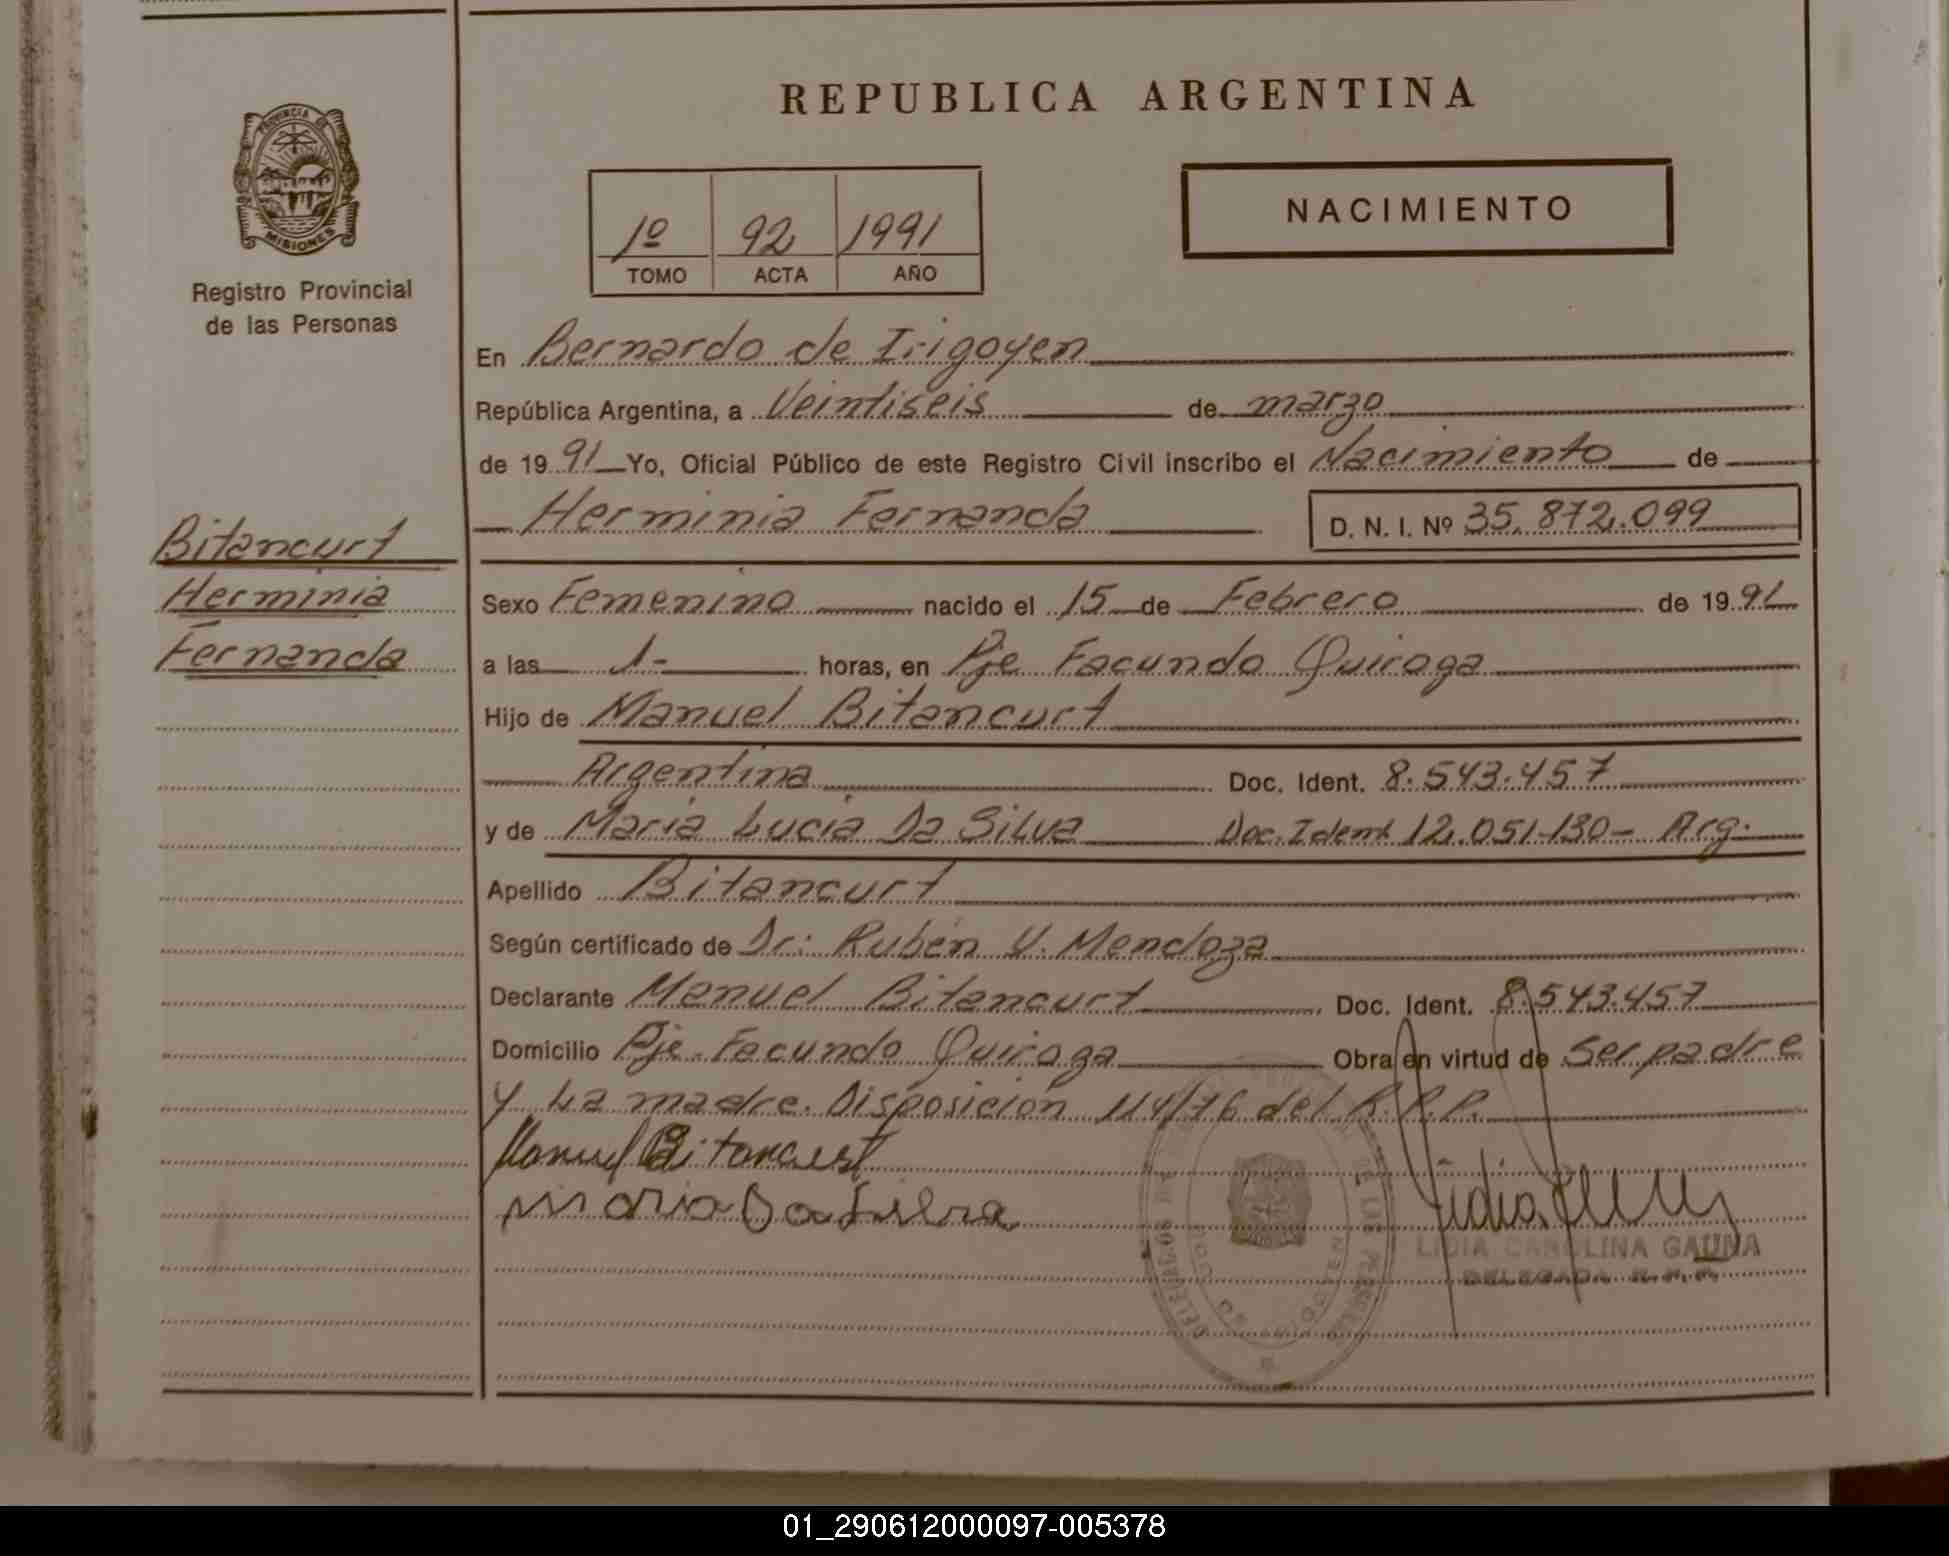 REPUBLICA ARGENTINA
PROVINCIA DE
MISIONES
Registro Provincial
de las Personas
1º 92 1991
TOMO ACTA AÑO
NACIMIENTO
En Bernardo de Irigoyen
República Argentina, a Veintiseis de marzo
de 1991 Yo, Oficial Público de este Registro Civil inscribo el Nacimiento de
Herminia Fernanda D. N. I. Nº 35.872.099
Bitancurt
Herminia
Fernanda
Sexo Femenino nacido el 15 de Febrero de 1991
a las 1- horas, en Pje Facundo Quiroga
Hijo de Manuel Bitancurt
Argentina Doc. Ident. 8.543.457
y de Maria Lucia Da Silva Doc. Ident 12.051.130- Arg.
Apellido Bitancurt
Según certificado de Dr: Rubén V. Mendoza
Declarante Manuel Bitancurt Doc. Ident. 8.543.457
Domicilio Pje. Facundo Quiroga Obra en virtud de Ser padre
y La madre. Disposición 114/76 del R.P.P.
Manuel Bitancurt
Maria Da Silva
LIDIA CAROLINA GAUNA
DELEGADA R.P.P.
01_290612000097-005378